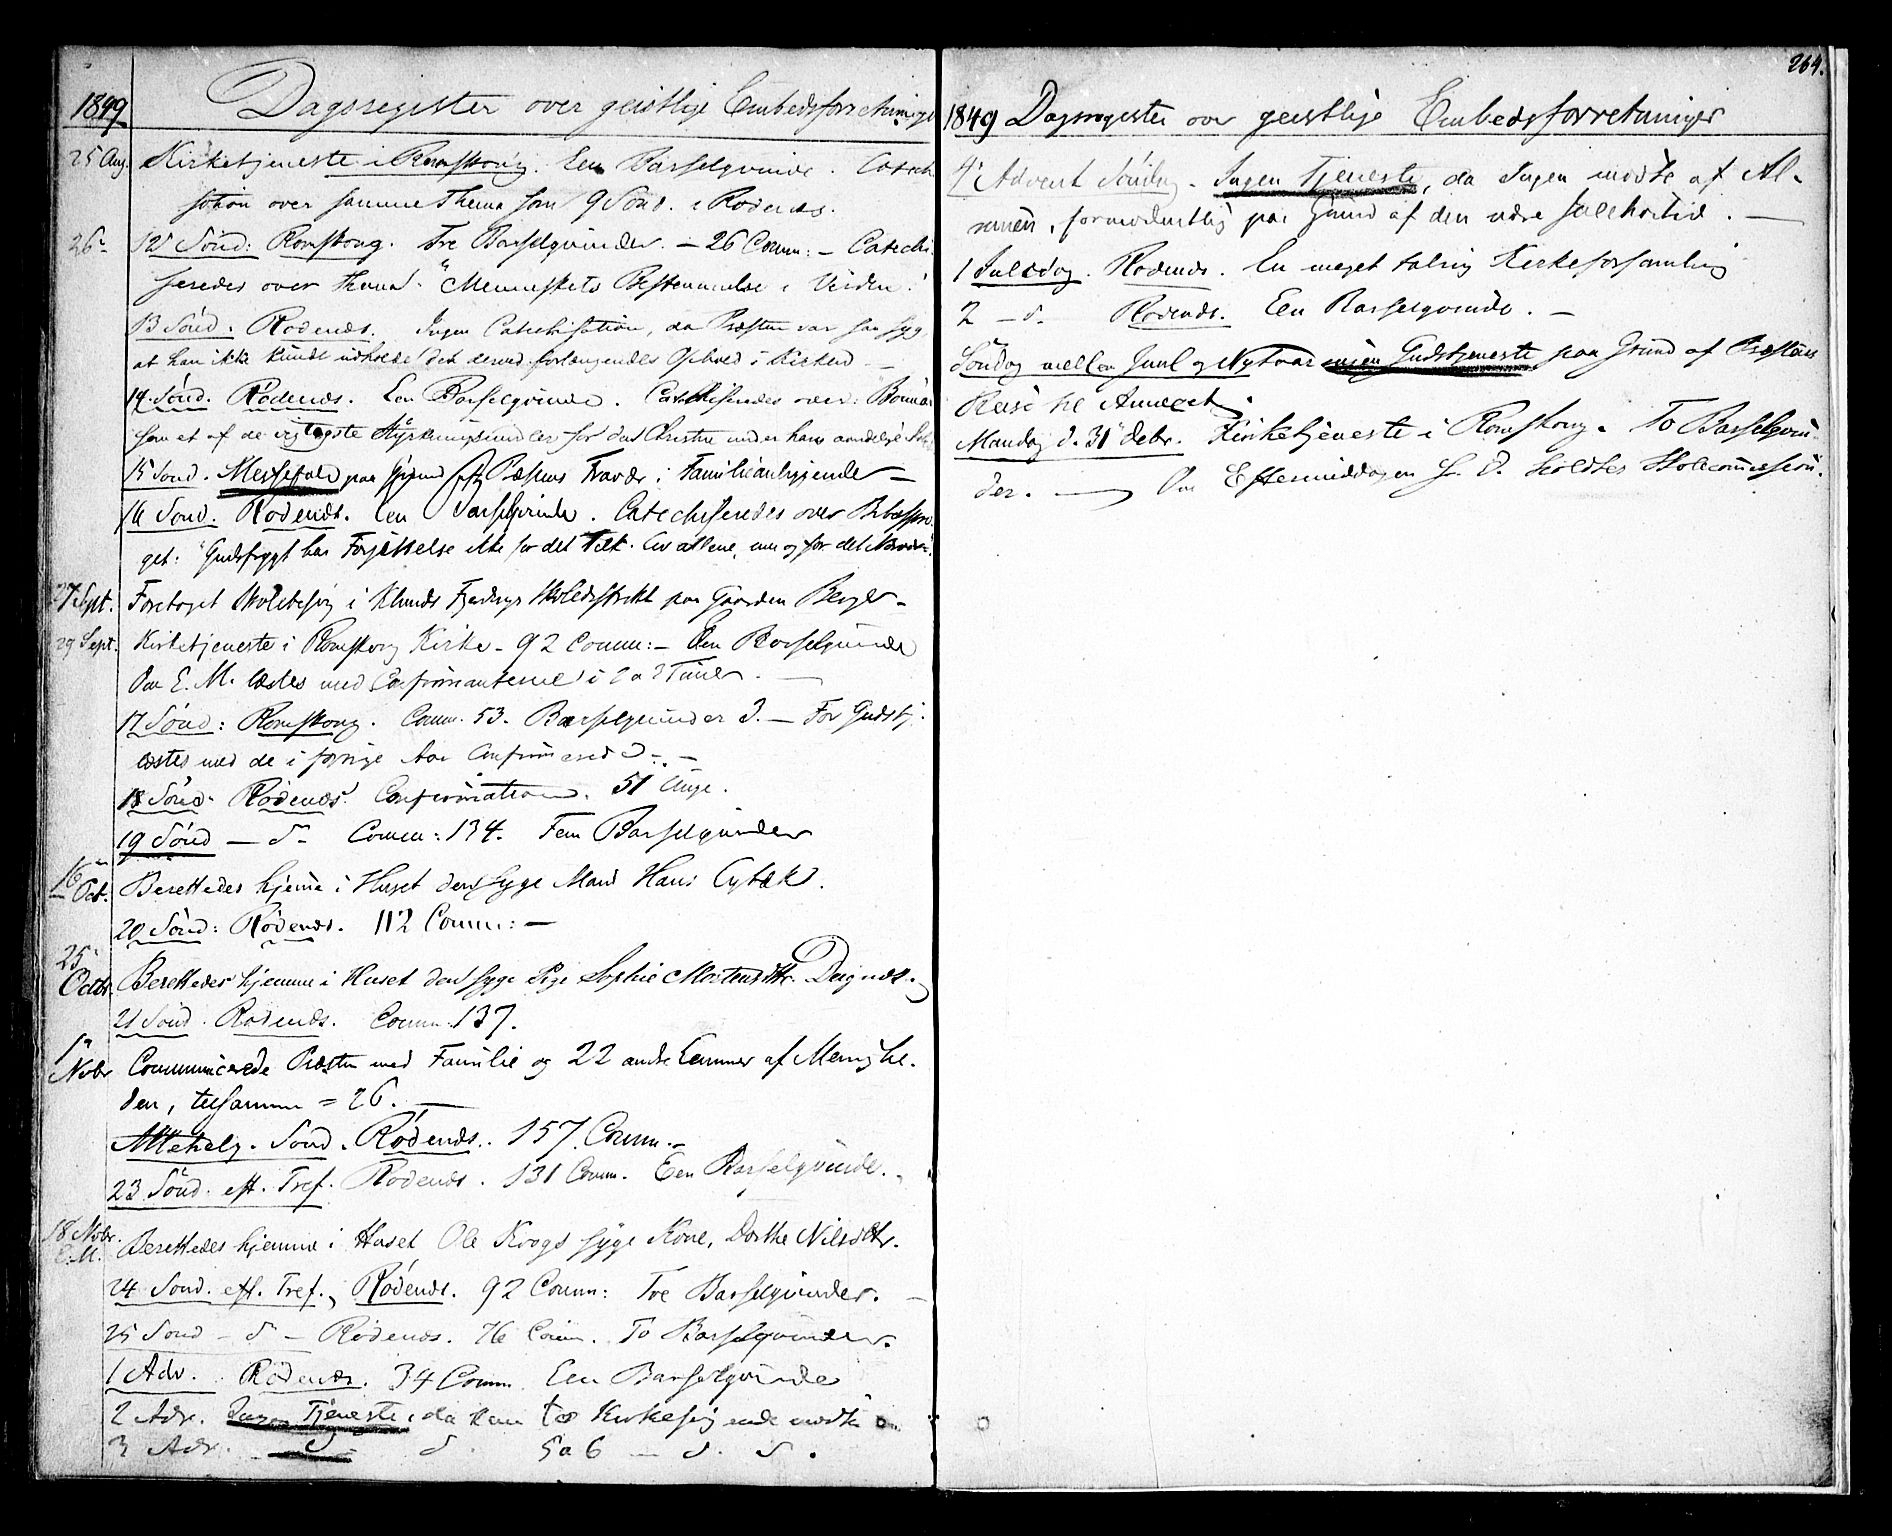 1849 Dagsregister over geistlige Embedsforretninger
25 Aug. Kirketjeneste i Romskoug. Een Barselqvinde. Catech
sation over samme Thema som 9 Sönd. i Rödenæs.
26 12 Sönd: Romskoug. Tre Barselqvinder. – 26 Comm: – Catechi
seredes over Thema: "Menneskets Bestemmelse i Verden".
13 Sönd: Rödenæs. Ingen Catechisation, da Præsten var saa syg
at han ikke kunde udholde det derved forlængendes Ophold i Kirken. –
14. Sönd. Rödenæs. Een Barselqvinde. Catechiseredes over: Bönnen
som et af de vigtigste Styrkningsmidler for den Christne under hans aandelige
15 Sönd. Messefald paa Grund af Præstens Fravær i Familieanliggender –
16 Sönd. Rödenæs. Een Barselqvinde. Catechiseredes over Bibelspro
get: "Gudsfrygt har Forjættelse ikke for det Tilk. Liv allene, men og for det Nærv."
27 Sept. Foretaget Skolebesög i Klunds Fjerdings Skoledistrikt paa Gaarden Berger –
29 Sept. Kirketjeneste i Romskoug Kirke – 92 Comm: – Een Barselqvinde
Om E. M. læstes med Confirmanterne i 2 a 3 Timer. –
17 Sönd: Romskoug. Comm. 53. Barselqvinder 3. – För Gudstj.
læstes med de i forrige Aar Confirmerede. –
18 Sönd. Rödenæs. Confirmation. 51 Unge.
19 Sönd – d – Comm: 134. Fem Barselqvinder
16 Oct. Berettedes hjemme i Huset den syge Mand Hans
20 Sönd: Rödenæs. 112 Comm: –
25 Octbr. Berettedes hjemme i Huset den syge Pige Sophie Mortensdttr.
21 Sönd. Rödenæs. Comm: 137.
1 Novbr Communicerede Præsten med Familie og 22 andre Lemmer af Menighe-
den, tilsammen = 26. –
Allehelg. Sönd. Rödenæs. 157 Comm. –
23 Sönd. eft. Tref. Rödenæs. 131 Comm. Een Barselqvinde. –
18 Novbr. E.M. Berettedes hjemme i Huset Ole Krogs syge Kone, Dorthe Nilsdttr.
24 Sond. eft. Tref., Rödenæs. 92 Comm: Tre Barselqvinder. –
25 Sond – d – Rödenæs. 76 Comm. To Barselqvinder.
1 Adv. Rödenæs. 34 Comm. Een Barselqvinde
2 Adv. Ingen Tjeneste, da kun to Kirkesögende mödte
3 Adv. – d – d. 5 a 6 – d. d.
264.
1849 Dagsregister over geistlige Embedsforretninger
4 Advent Söndag. Ingen Tjeneste, da Ingen mödte af Al-
muen, formodentlig paa Grund af den nære Julehöitid. –
1 Juledag. Rödenæs. En meget talrig Kirkeforsamling
2 – d – Rödenæs. Een Barselqvinde. –
Söndag mellem Juul og Nytaar ingen Gudstjeneste paa Grund af Præstens
Reise til Annexet.
Mandag d. 31 Decbr. Kirketjeneste i Romskoug. To Barselqvin-
der. – Om Eftermiddagen s. D. holdtes Skolecommission.